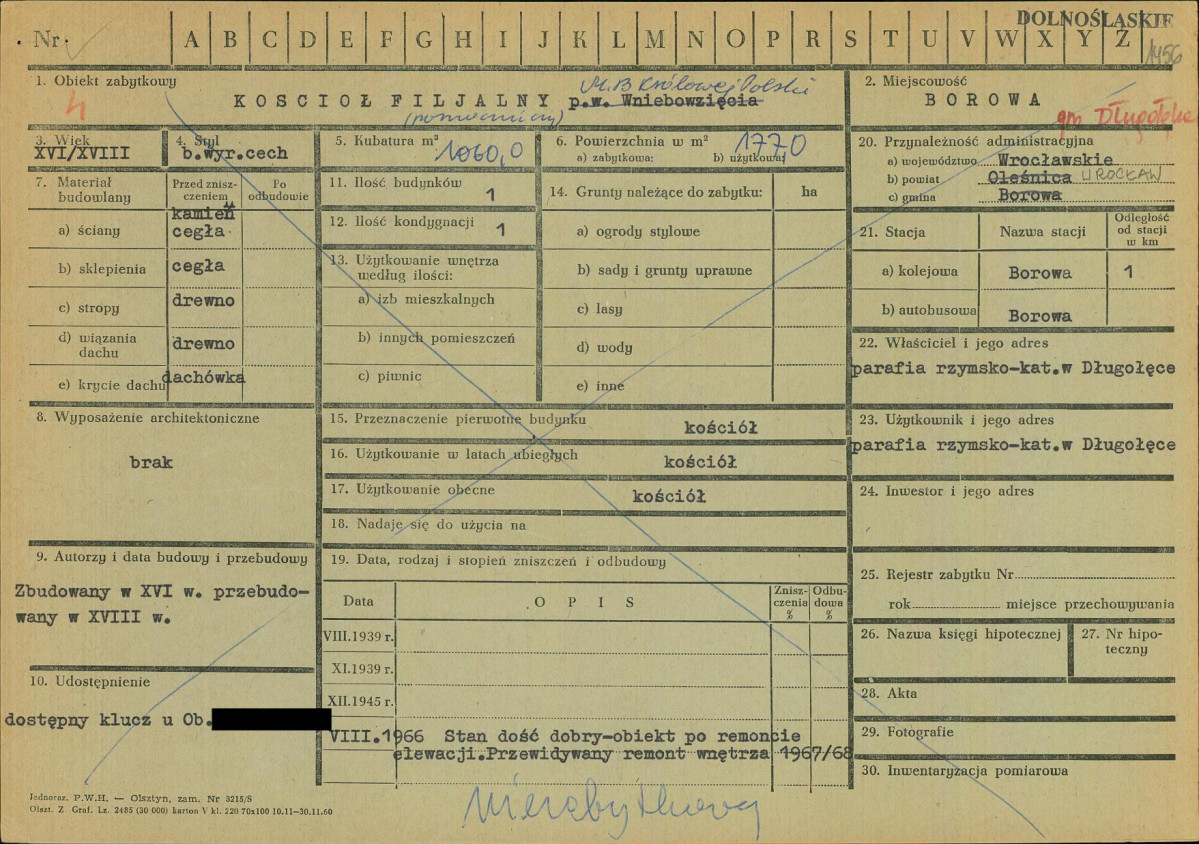 DOLNOŚLĄSKIE
Nr.
A B C D E F G H I J K L M N O P R S T U V W X Y Z
1456
1. Obiekt zabytkowy
4
M.B Królowej Polski
KOSCIOŁ FILJALNY p.w. Wniebowzięcia
(pomocniczy)
2. Miejscowość
BOROWA
gm Długołęka
3. Wiek
XVI/XVIII
4. Styl
b.wyr.cech
5. Kubatura m³
1060,0
6. Powierzchnia w m²
a) zabytkowa: b) użytkowa:
177,0
7. Materiał budowlany
Przed zniszczeniem
Po odbudowie
a) ściany
kamień
cegła
b) sklepienia
cegła
c) stropy
drewno
d) wiązania dachu
drewno
e) krycie dachu
dachówka
8. Wyposażenie architektoniczne
brak
9. Autorzy i data budowy i przebudowy
Zbudowany w XVI w. przebudo-
wany w XVIII w.
10. Udostępnienie
dostępny klucz u Ob.
11. Ilość budynków
1
12. Ilość kondygnacji
1
13. Użytkowanie wnętrza
według ilości:
a) izb mieszkalnych
b) innych pomieszczeń
c) piwnic
14. Grunty należące do zabytku:
ha
a) ogrody stylowe
b) sady i grunty uprawne
c) lasy
d) wody
e) inne
15. Przeznaczenie pierwotne budynku
kościół
16. Użytkowanie w latach ubiegłych
kościół
17. Użytkowanie obecne
kościół
18. Nadaje się do użycia na
19. Data, rodzaj i stopień zniszczeń i odbudowy
Data
OPIS
Znisz-
czenia
%
Odbu-
dowa
%
VIII.1939 r.
XI.1939 r.
XII.1945 r.
VIII.1966 Stan dość dobry-obiekt po remoncie
elewacji.Przewidywany remont wnętrza 1967/68
20. Przynależność administracyjna
a) województwo Wrocławskie
b) powiat Oleśnica WROCŁAW
c) gmina Borowa
21. Stacja
Nazwa stacji
Odległość
od stacji
w km
a) kolejowa Borowa 1
b) autobusowa Borowa
22. Właściciel i jego adres
parafia rzymsko-kat.w Długołęce
23. Użytkownik i jego adres
parafia rzymsko-kat.w Długołęce
24. Inwestor i jego adres
25. Rejestr zabytku Nr
rok miejsce przechowywania
26. Nazwa księgi hipotecznej
27. Nr hipo-
teczny
28. Akta
29. Fotografie
30. Inwentaryzacja pomiarowa
niezabytkowy
Jednoraz. P.W.H. — Olsztyn, zam. Nr 3215/S
Olszt. Z. Graf. Lz. 2485 (30 000) karton V kl. 220 70x100 10.11—30.11.60